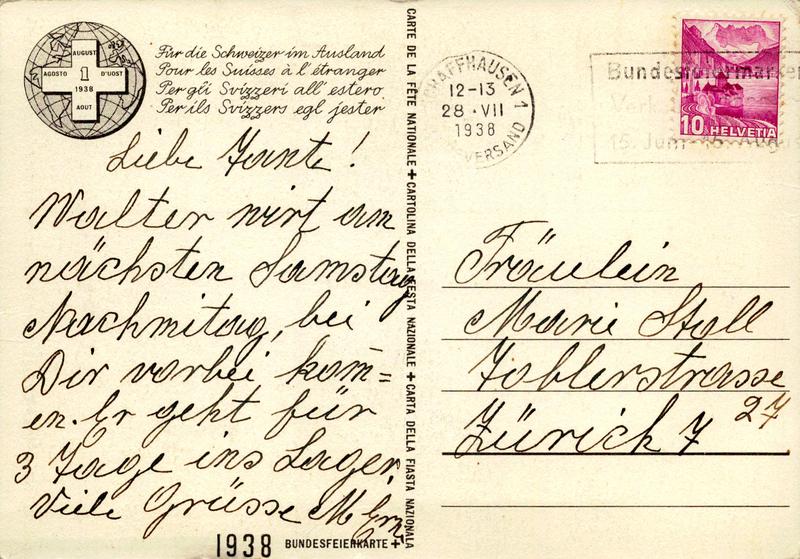 AUGUST
AGOSTO 1 D'UOST
1938
AOUT
Für die Schweizer im Ausland
Pour les Suisses à l'étranger
Per gli Svizzeri all'estero
Per ils Svizzers egl jester
Liebe Tante!
Walter wirt am
nächsten Samstag
Nachmitag, bei
Dir vorbei kom=
en. Er geht für
3 Tage ins Lager.
Viele Grüsse M.
1938 BUNDESFEIERKARTE +
CARTE DE LA FÊTE NATIONALE + CARTOLINA DELLA FESTA NAZIONALE + CARTA DELLA FIASTA NAZIONALA
SCHAFFHAUSEN 1
12-13
28·VII
1938
VERSAND
Bundesfeiermarken
15. Juni
10 HELVETIA
Fräulein
Marie Stoll
Toblerstrasse
27
Zürich 7